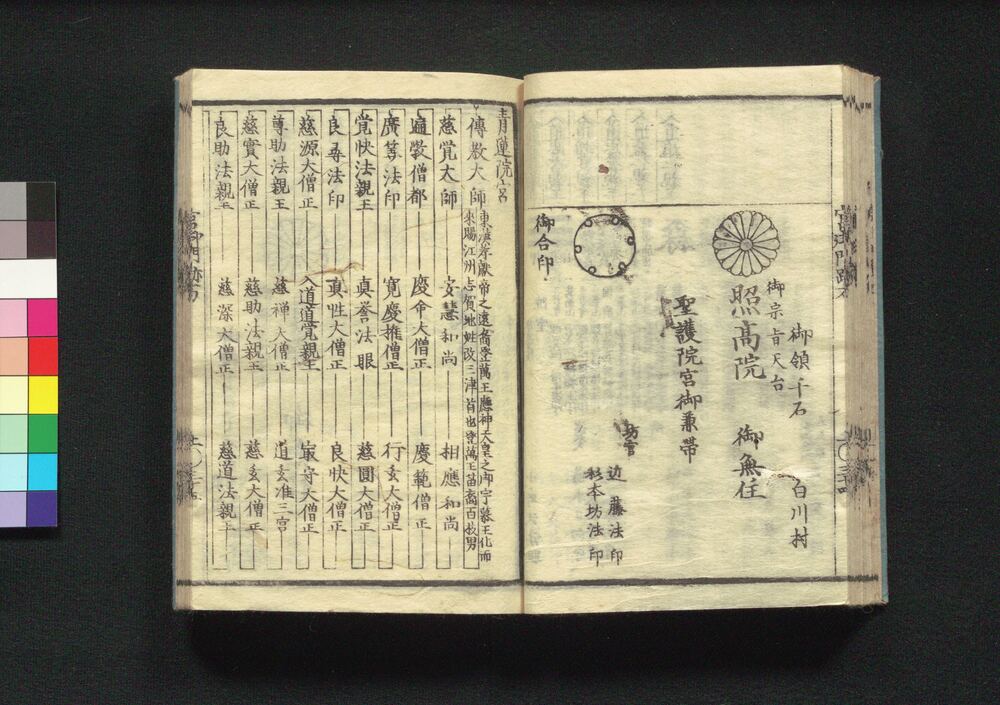 御領千石　白川村
御宗旨天台
照高院　御無住
聖護院宮御兼帯
坊官
近藤法印
杉本坊法印
御合印
青蓮院宮
傳教大師
東漢孝獻帝之遠裔登萬王應神天皇之御宇慕王化而
來賜江州志賀地姓改三津首也登萬王苗裔百枝男
慈覚大師　安慧和尚　相應和尚
遍斅僧都　慶命大僧正　慶範僧正
廣算法印　寛慶推僧正　行玄大僧正
覚快法親王　真誉法眼　慈圓大僧正
良尋法印　真性大僧正　良快大僧正
慈源大僧正　入道道覚親王　最守大僧正
尊助法親王　慈禅大僧正　道玄准三宮
慈實大僧正　慈助法親王　慈玄大僧正
良助法親王　慈深大僧正　慈道法親王